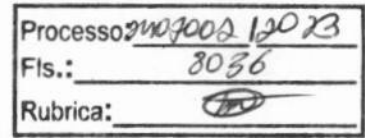 Processo: 2407002 / 2023
Fls.: 8036
Rubrica: